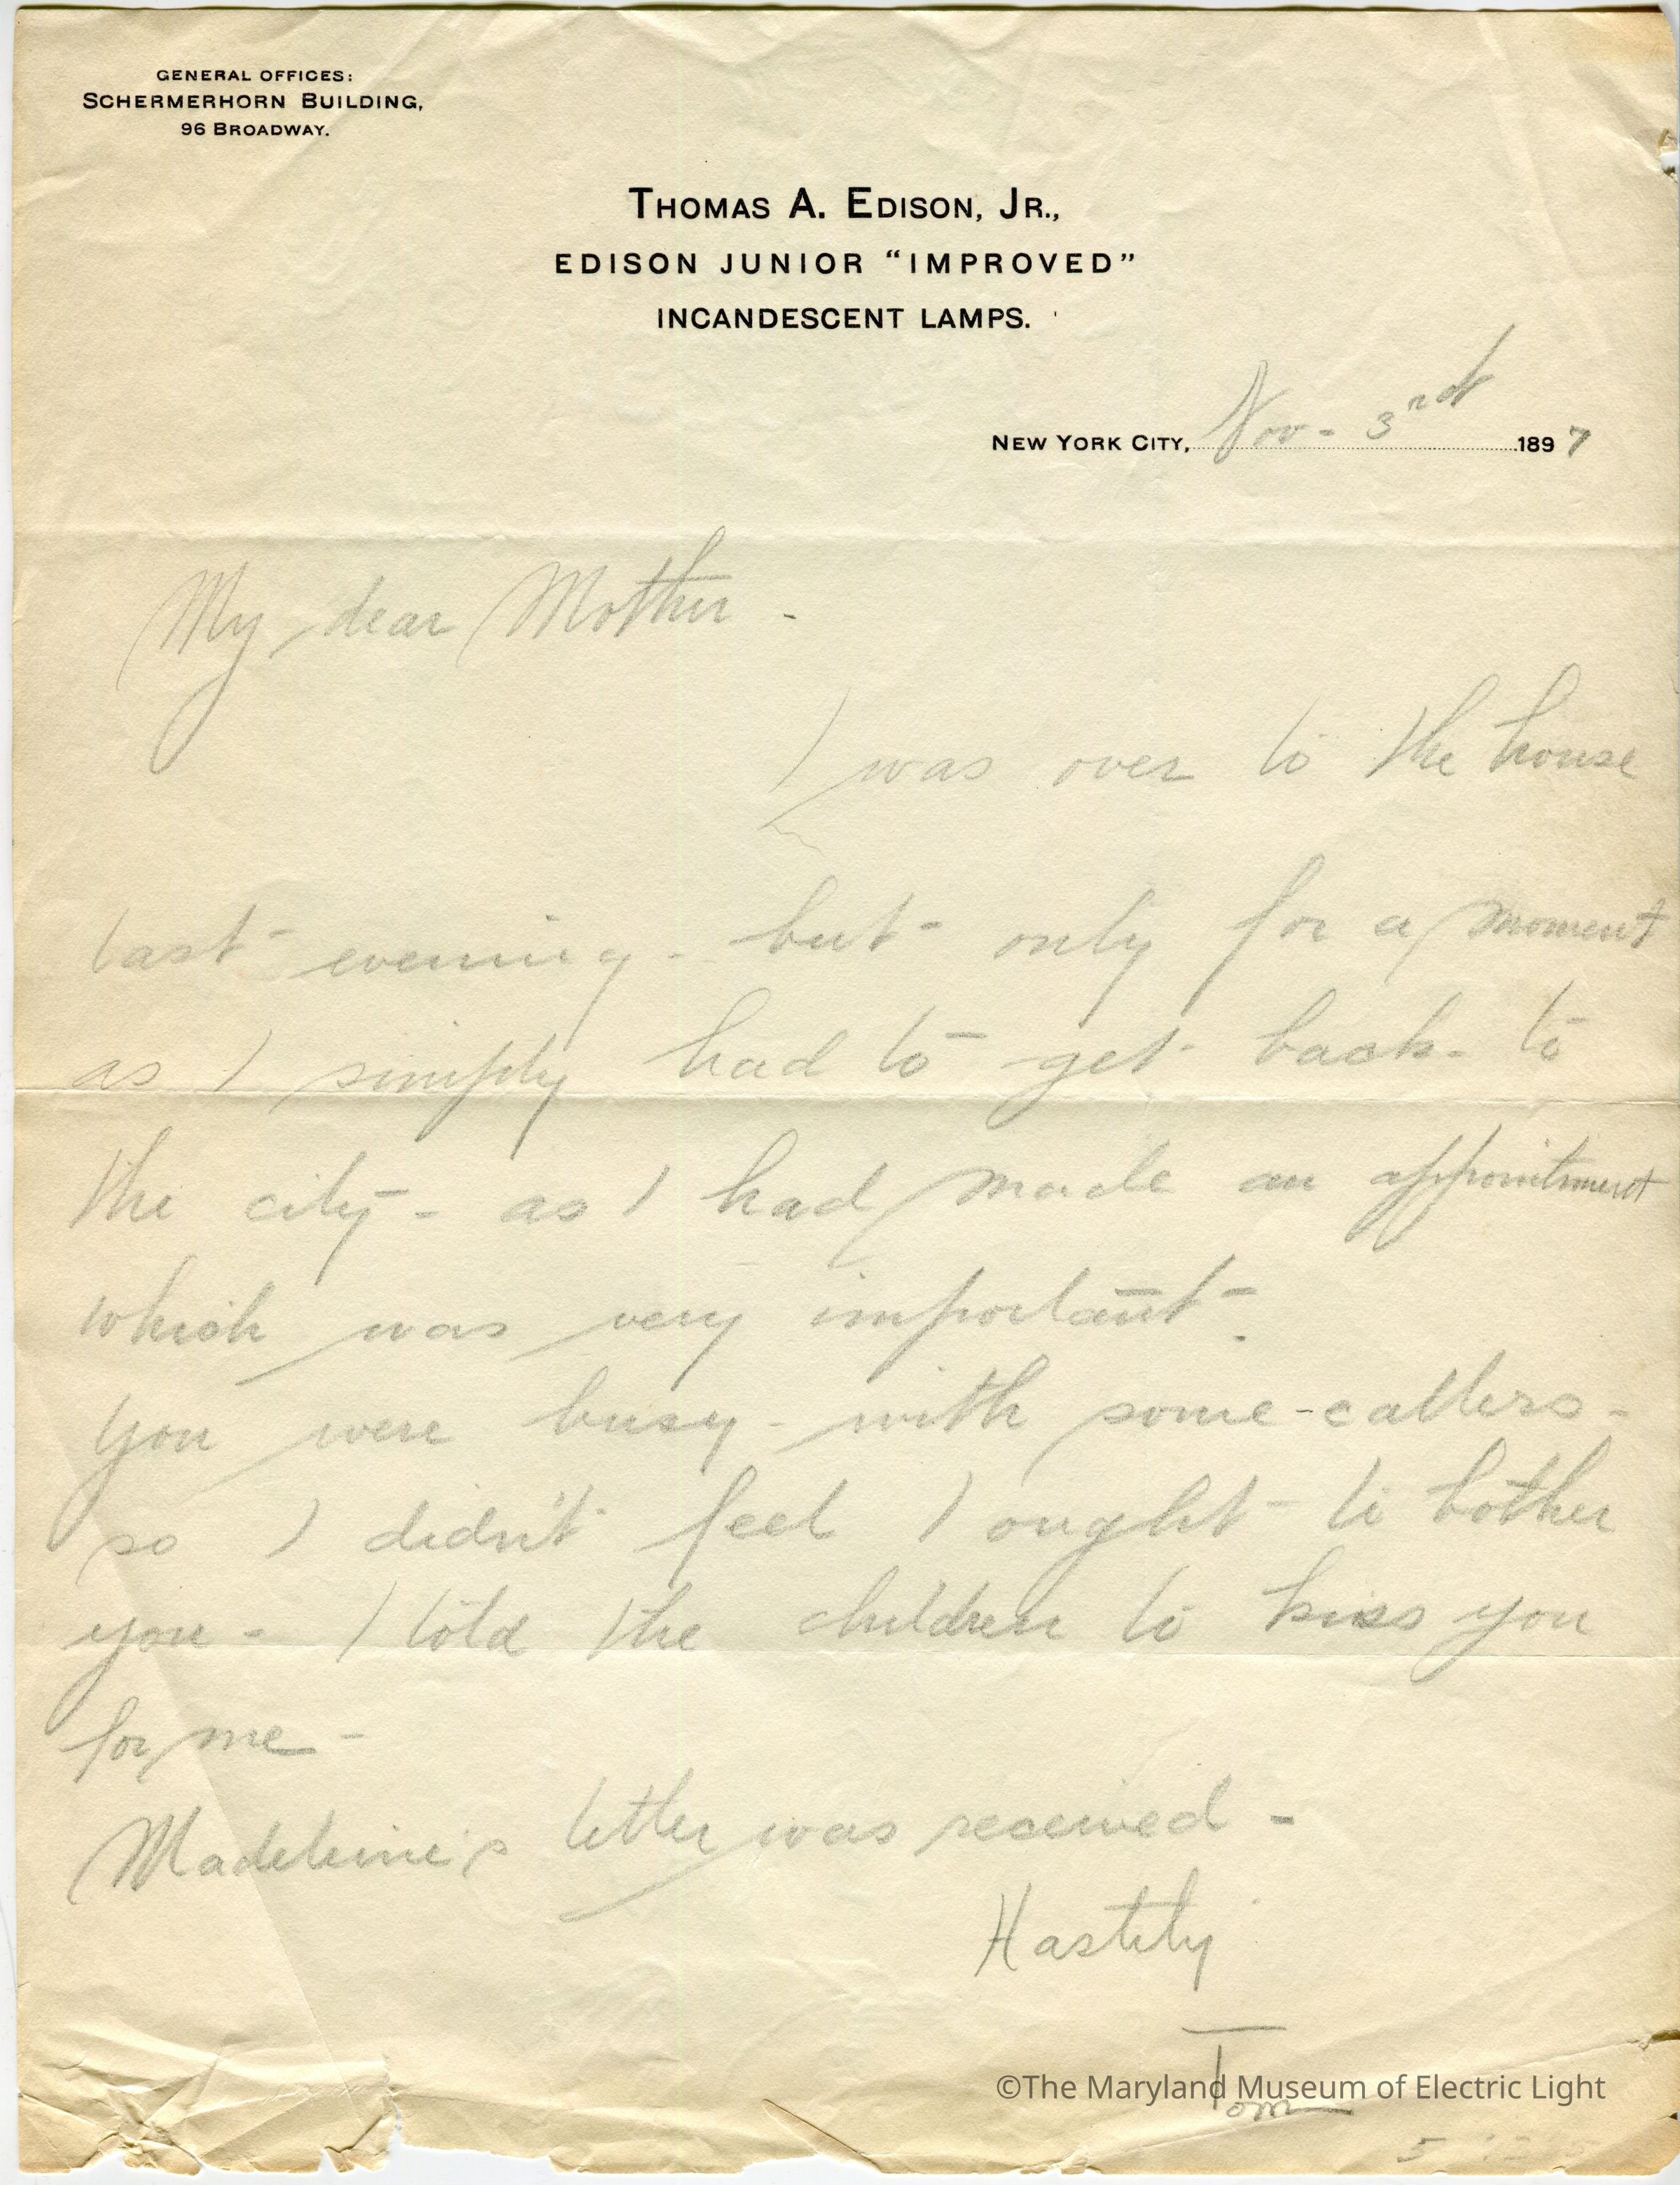 GENERAL OFFICES:
SCHERMERHORN BUILDING,
96 BROADWAY.
THOMAS A. EDISON, JR.,
EDISON JUNIOR "IMPROVED"
INCANDESCENT LAMPS.
NEW YORK CITY, Nov - 3rd 1897
My dear Mother -
I was over to the house
last evening - but only for a moment
as I simply had to get back - to
the city - as I had made an appointment
which was very important -
You were busy - with some - callers -
so I didn't feel I ought to bother
you - I told the children to kiss you
for me -
Madeleine's letter was received -
Hastily
Tom
©The Maryland Museum of Electric Light